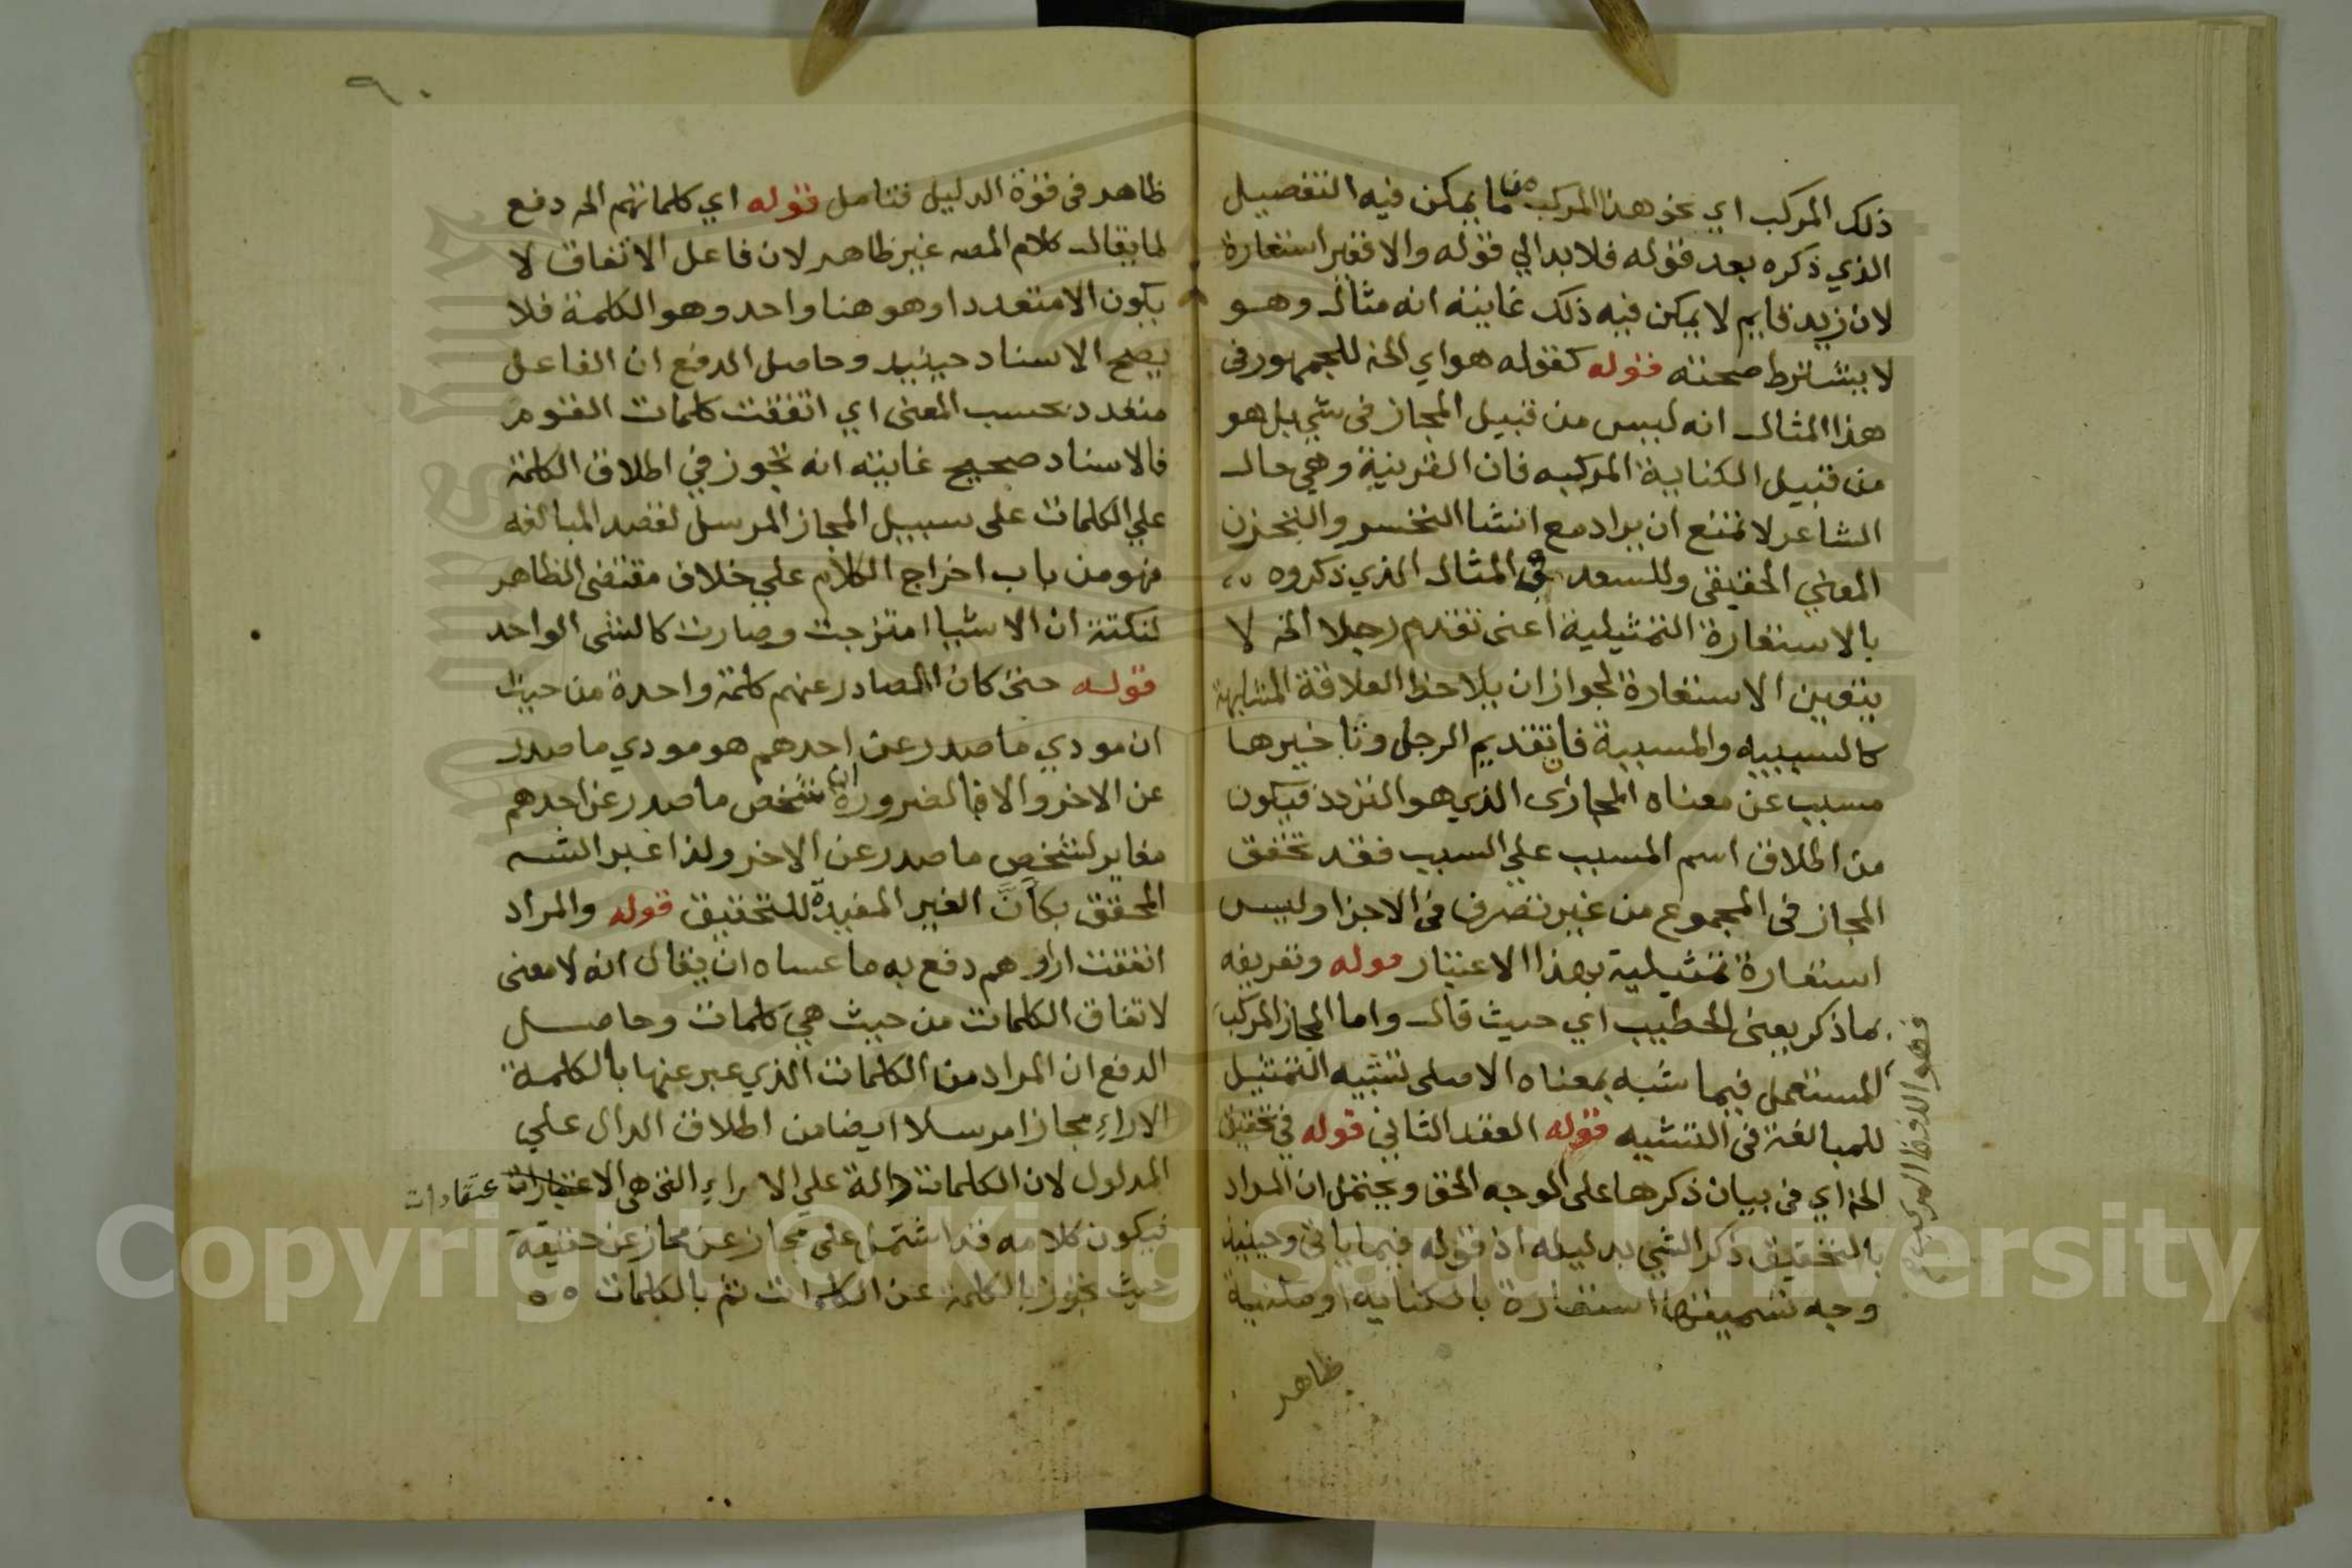 ذلك المركب اي نحو هذا المركب من ما يمكن فيه التفصيل
الذي ذكره بعد قوله فلا بد الي قوله والا فغير استعارة
لان زيد قايم لا يمكن فيه ذلك غايته انه مثال وهو
لا يشترط صحته قوله كقوله هواي الخ للجمهور في
هذا المثال انه ليس من قبيل المجاز في شي بل هو
من قبيل الكناية المركبه فان القرينة وهي حال
الشاعر لا تمنع ان يراد مع انشا التحسر والتحزن
المعني الحقيقي وللسعد في المثال الذي ذكروه
بالاستعارة التمثيلية اعني تقدم رجلا الخ لا
يتعين الاستعارة لجواز ان يلاحظ العلاقة المشابهة
كالسببيه والمسببية فان تقديم الرجل وتاخيرها
مسبب عن معناه المجازى الذي هو التردد فيكون
من اطلاق اسم المسبب علي السبب فقد تحقق
المجاز في المجموع من غير تصرف في الاجزا وليس
استعارة تمثيلية بهذا الاعتبار قوله وتعريفه
بما ذكر يعني الخطيب اي حيث قال واما المجاز المركب
فهو اللفظ المركب
المستعمل فيما شبه بمعناه الاصلى تشبيه التمثيل
للمبالغة في التشبيه قوله العقد الثاني قوله في تحقيق
الخ اي في بيان ذكرها على الوجه الحق ويحتمل ان المراد
بالتحقيق ذكر الشي بدليله اذ قوله فيما ياتي وحينيذ
وجه تسميتها استعارة بالكنايه او مكنية
ظاهر
٩٠
ظاهر في قوة الدليل فتامل قوله اي كلماتهم الخ دفع
لما يقال كلام المص غير ظاهر لان فاعل الاتفاق لا
يكون الا متعددا وهو هنا واحد وهو الكلمة فلا
يصح الاسناد حينيد وحاصل الدفع ان الفاعل
متعدد بحسب المعنى اي اتفقت كلمات القوم
فالاسناد صحيح غايته انه تجوز في اطلاق الكلمة
علي الكلمات على سبيل المجاز المرسل لقصد المبالغه
فهو من باب اخراج الكلام علي خلاف مقتضى الظاهر
لنكتة ان الاشيا امتزجت وصارت كالشى الواحد
قوله حتى كان الصادر عنهم كلمة واحدة من حيث
ان مودي ما صدر عن احدهم هو مودي ما صدر
عن الاخر والا فبالضرورة ان تشخص ما صدر عن احدهم
مغاير لتشخص ما صدر عن الاخر ولذا عبر الشه
المحقق بكأنَّ الغير المفيدة للتحقيق قوله والمراد
اتفقت اراوهم دفع به ما عساه ان يقال انه لا معنى
لاتفاق الكلمات من حيث هي كلمات وحاصل
الدفع ان المراد من الكلمات الذي عبر عنها بالكلمة
الاراءِ مجازا مرسلا ايضا من اطلاق الدال علي
المدلول لان الكلمات دالة علي الاراءِ التى هى الاعتبارات عتقادات
فيكون كلامه قد اشتمل على مجاز عن مجاز عن حقيقة
حيث تجوز بالكلمة عن الكلمات ثم بالكلمات
Copyright © King Saud University